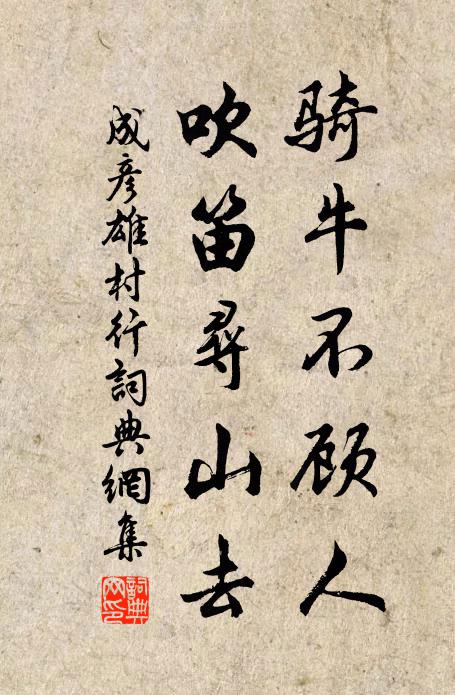 骑牛不顾人
吹笛寻山去
成彦雄村行詞典網集
詞典网印